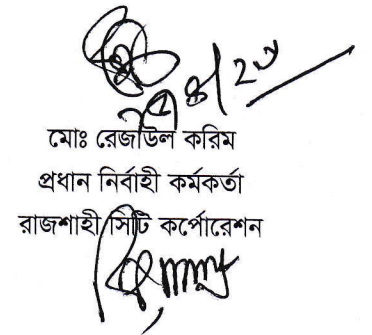 মোঃ রেজাউল করিম
প্রধান নির্বাহী কর্মকর্তা
রাজশাহী সিটি কর্পোরেশন